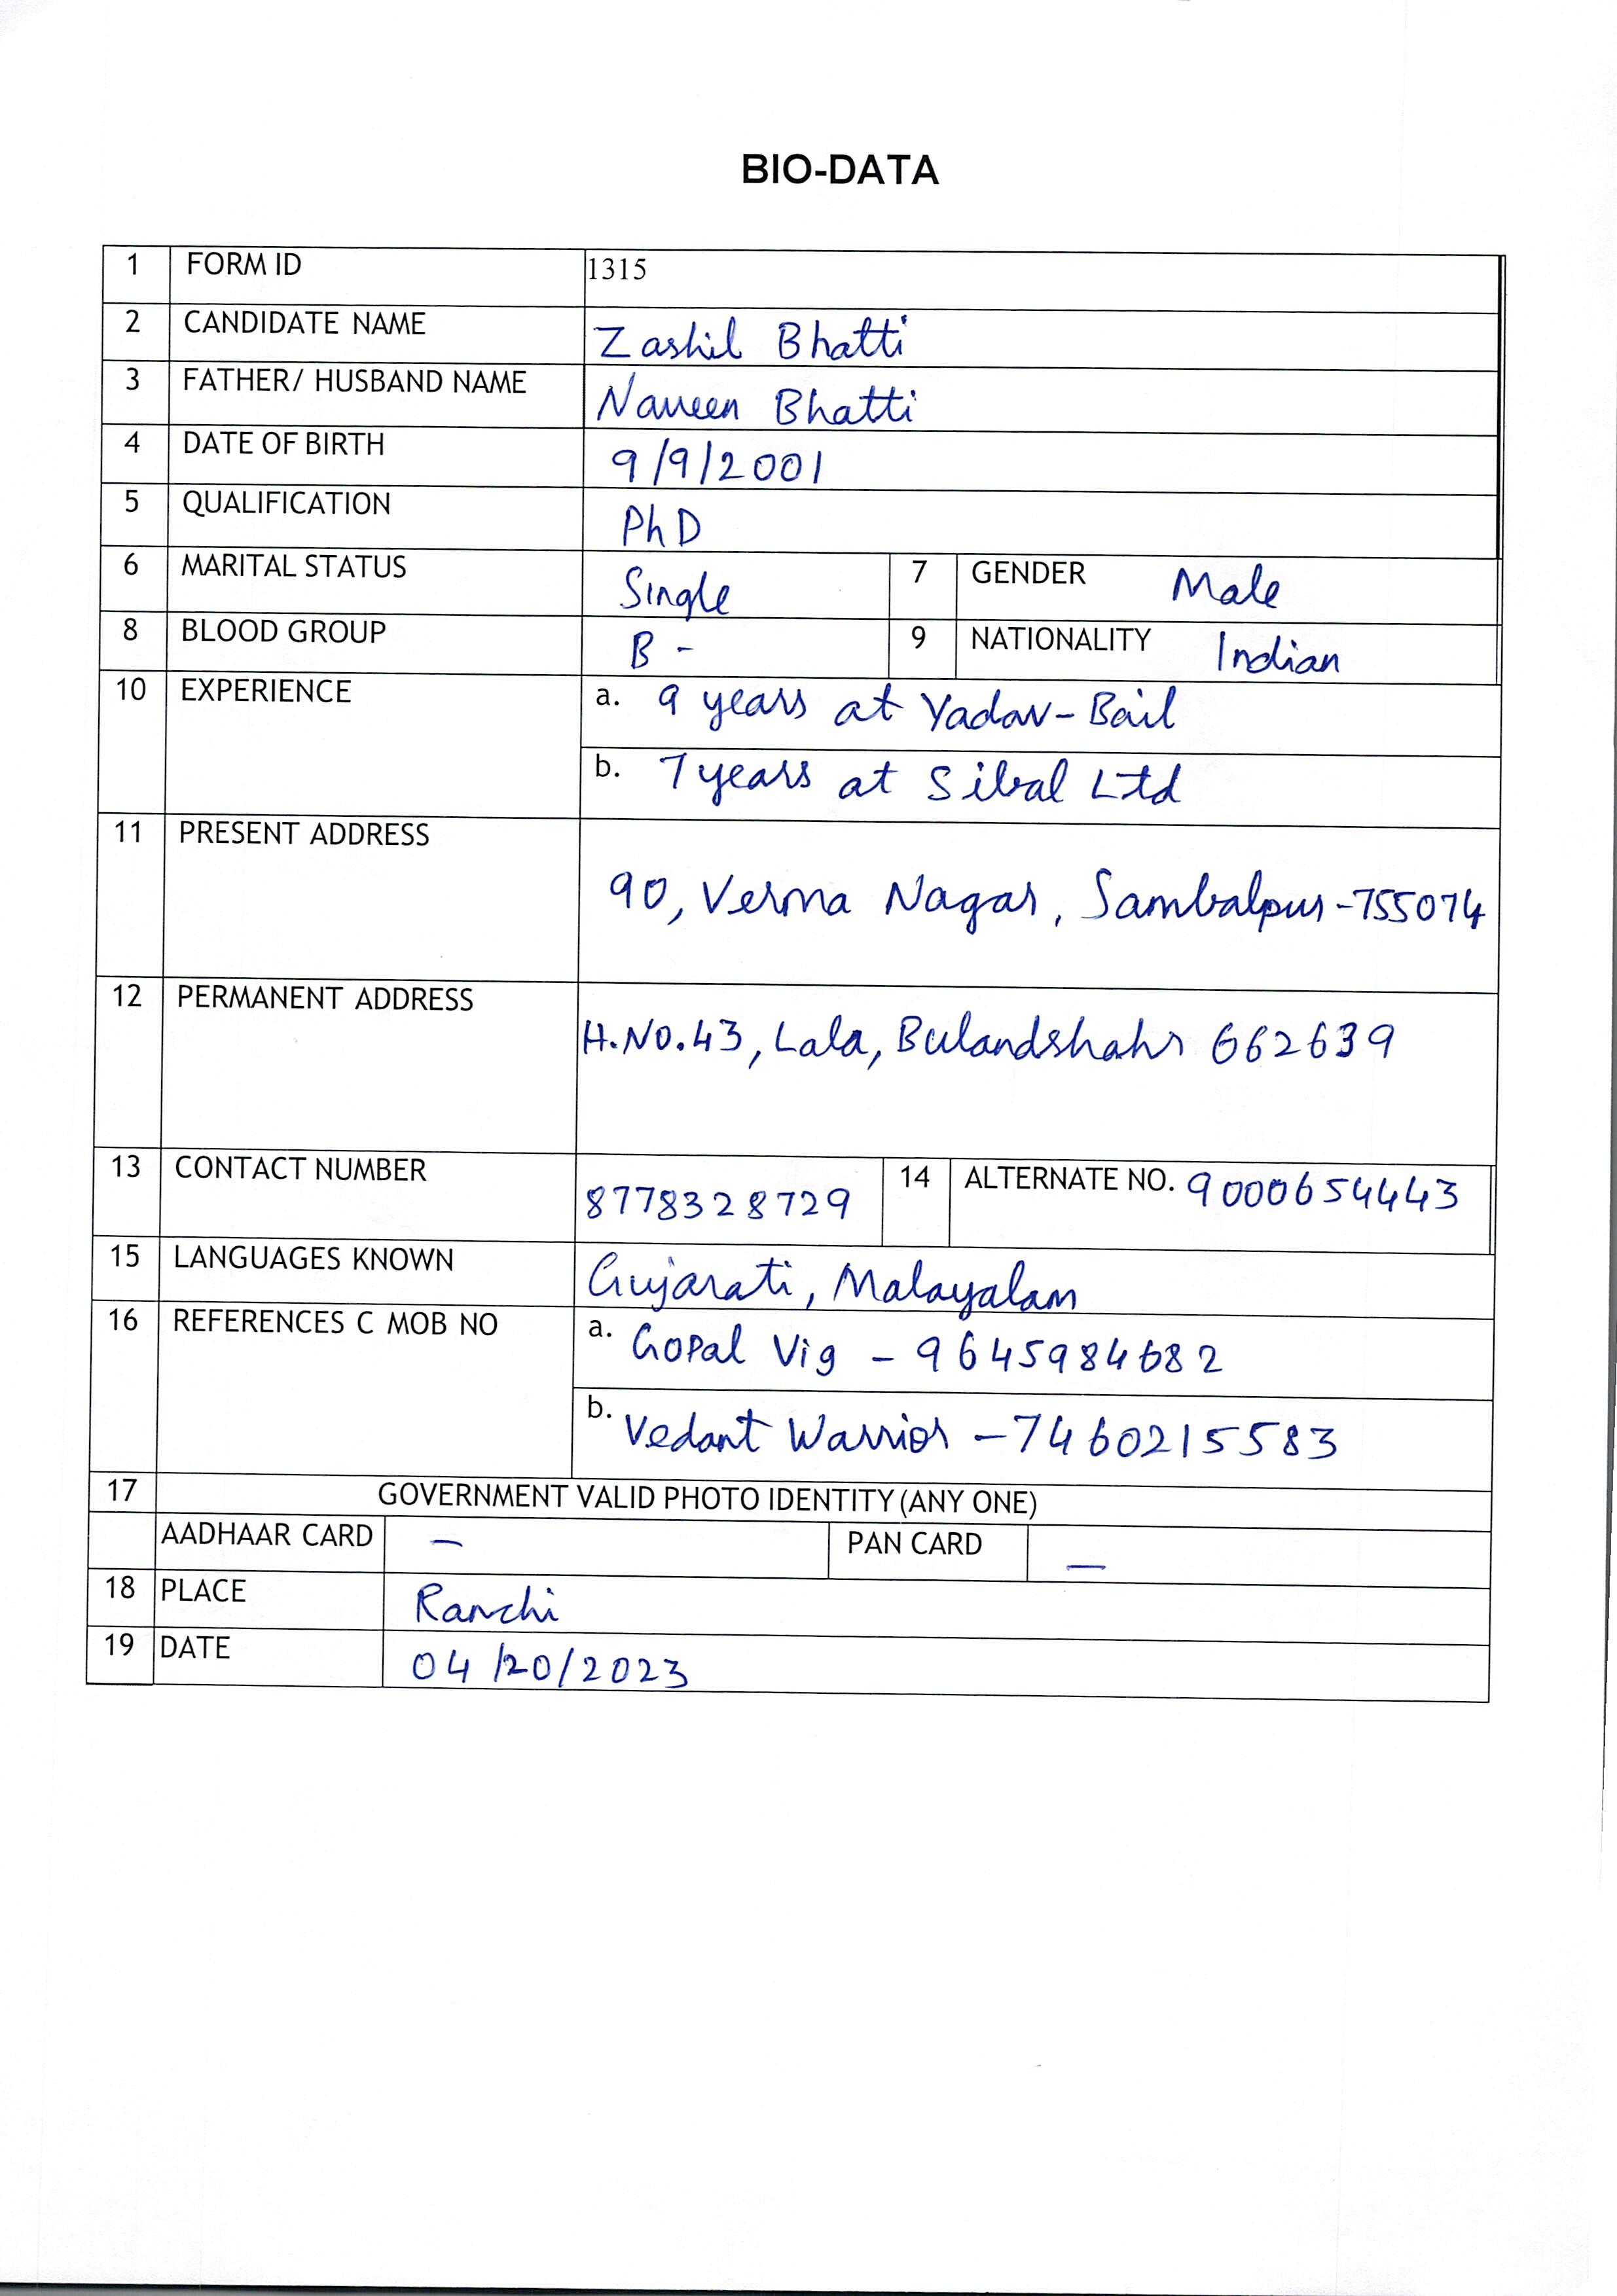 BIO-DATA
1 FORM ID 1315
2 CANDIDATE NAME Zashil Bhatti
3 FATHER/ HUSBAND NAME Naveen Bhatti
4 DATE OF BIRTH 9/9/2001
5 QUALIFICATION PhD
6 MARITAL STATUS Single 7 GENDER Male
8 BLOOD GROUP B - 9 NATIONALITY Indian
10 EXPERIENCE a. 9 years at Yadav-Bail
b. 7 years at Sibal Ltd
11 PRESENT ADDRESS
90, Verma Nagar, Sambalpur-755074
12 PERMANENT ADDRESS
H.NO.43, Lala, Bulandshahr 662639
13 CONTACT NUMBER 8778328729 14 ALTERNATE NO. 9000654443
15 LANGUAGES KNOWN Gujarati, Malayalam
16 REFERENCES C MOB NO a. Gopal Vig - 9645984682
b. Vedant Warrior - 7460215583
17 GOVERNMENT VALID PHOTO IDENTITY (ANY ONE)
AADHAAR CARD – PAN CARD –
18 PLACE Ranchi
19 DATE 04/20/2023